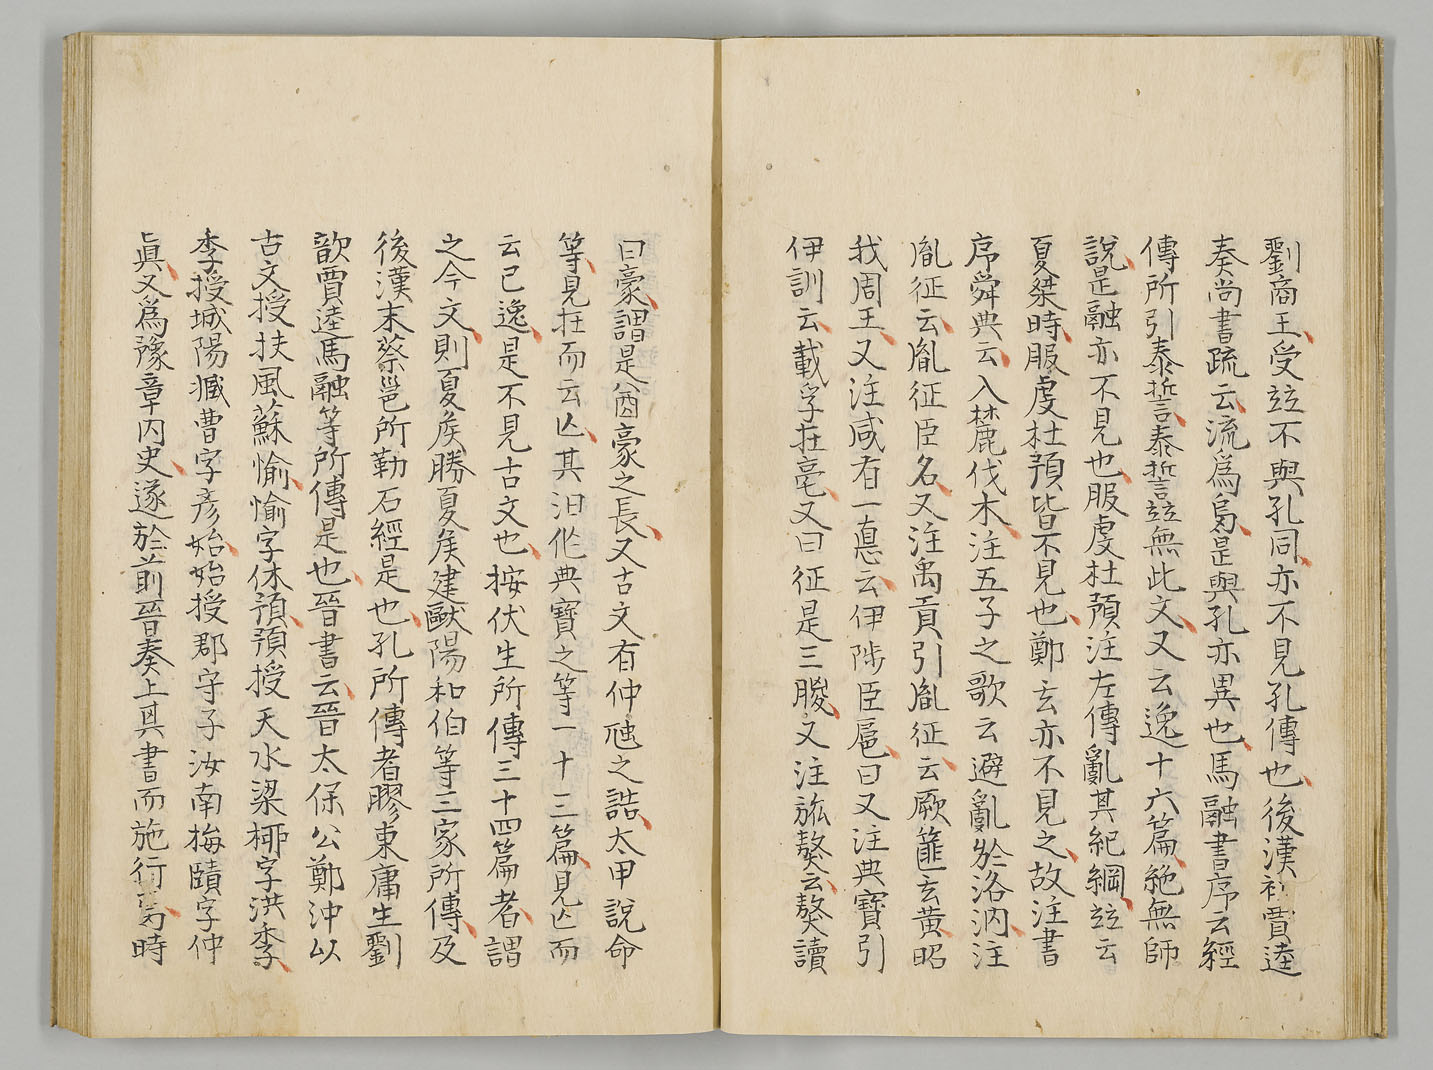 劉商王受竝不與孔同亦不見孔傳也後漢初賈逵
奏尚書疏云流爲烏是與孔亦異也馬融書序云經
傳所引泰誓泰誓竝無此文又云逸十六篇絶無師
說是融亦不見也服虔杜預注左傳亂其紀綱竝云
夏桀時服虔杜預皆不見也鄭玄亦不見之故注書
序舜典云入麓伐木注五子之歌云避亂於洛汭注
胤征云胤征臣名又注禹貢引胤征云厥篚玄黃昭
我周王又注咸有一悳云伊陟臣扈曰又注典寶引
伊訓云載孚在亳又曰征是三朡又注旅獒云獒讀
曰豪謂是酋豪之長又古文有仲虺之誥太甲說命
等見在而云亾其汩作典寶之等一十三篇見亾而
云已逸是不見古文也按伏生所傳三十四篇者謂
之今文則夏矦勝夏矦建歐陽和伯等三家所傳及
後漢末蔡邕所勒石經是也孔所傳者膠東庸生劉
歆賈逵馬融等所傳是也晉書云晉太保公鄭沖以
古文授扶風蘇愉愉字休預預授天水梁柳字洪季
季授城陽臧曹字彦始始授郡守子汝南梅賾字仲
眞又爲豫章内史遂於前晉奏上其書而施行焉時